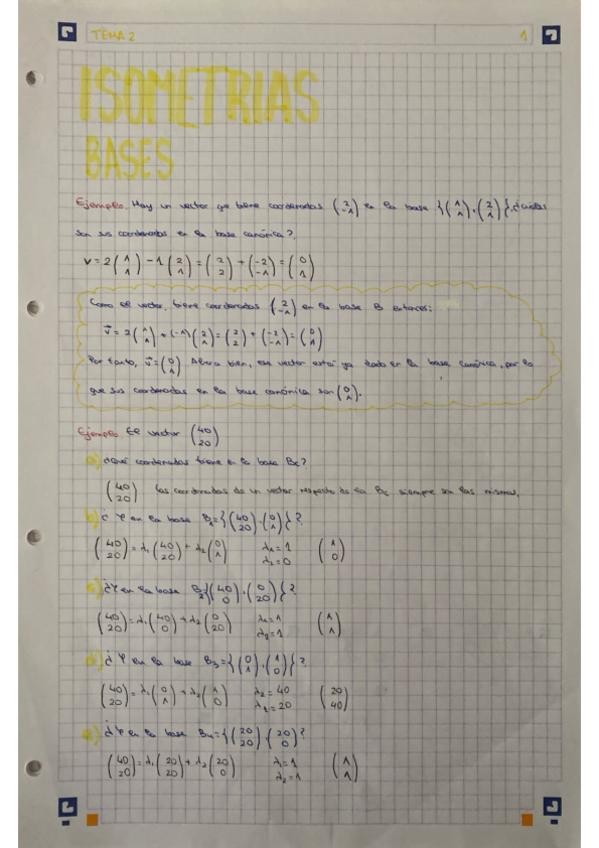 TEMA 2 1
ISOMETRIAS
BASES
Ejemplo. Hay un vector qe tiene coordenadas (2 -1) en la base {(1 1), (2 1)}, ¿cuáles
son sus coordenadas en la base canónica?
v = 2(1 1) - 1(2 1) = (2 2) + (-2 -1) = (0 1)
Como el vector, tiene coordenadas (2 -1) en la base B entonces:
v = 2(1 1) + (-1)(2 1) = (2 2) + (-2 -1) = (0 1)
Por tanto, v = (0 1). Ahora bien, ese vector está ya dado en la base canónica, por lo
que sus coordenadas en la base canónica son (0 1).
Ejemplo El vector (40 20)
a) ¿Qué coordenadas tiene en la base Bc?
(40 20) Las coordenadas de un vector respecto de la Bc siempre son las mismas.
b) ¿Y en la base B1 = {(40 20), (0 1)}?
(40 20) = λ1(40 20) + λ2(0 1) λ1 = 1 (1 0)
λ2 = 0
c) ¿Y en la base B2{(40 0), (0 20)}?
(40 20) = λ1(40 0) + λ2(0 20) λ1 = 1 (1 1)
λ2 = 1
d) ¿Y en la base B3 = {(0 1), (1 0)}?
(40 20) = λ1(0 1) + λ2(1 0) λ2 = 40 (20 40)
λ1 = 20
e) ¿Y en la base B4 = {(20 20), (20 0)}?
(40 20) = λ1(20 20) + λ2(20 0) λ1 = 1 (1 1)
λ2 = 1